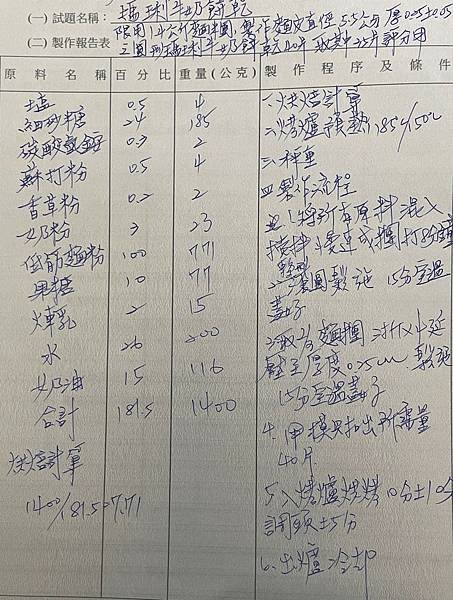 (一) 試題名稱： 瑪琍牛奶餅乾
限用1.4公斤麵糰,製作麵皮直徑5.5公分 厚0.25±0.05
(二) 製作報告表 之圓形瑪琍牛奶餅乾40片
原料名稱 百分比 重量(公克) 製作程序及條件
鹽 0.5 4 一、烘焙計算
細砂糖 24 185 二、烤爐預熱185℃/150℃
碳酸氫銨 0.3 2 三、秤重
蘇打粉 0.5 4 四、製作流程
香草粉 0.2 2 1.將所有原料混入
奶粉 3 23 攪拌
低筋麵粉 100 771
果糖 10 77 鬆弛 15分室溫
煉乳 2 15 蓋好
水 26 200 麵糰
奶油 15 116 壓至厚度0.25cm 鬆弛
合計 181.5 1400 15分室溫蓋好
4. 用模具扣出所需量
烘焙計算 40片
1400/181.5=7.71 5.入烤爐烘烤10分±10分
調頭±5分
6.出爐冷却